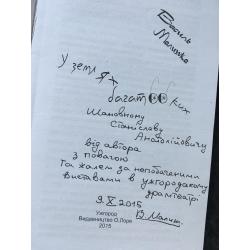 Василь
У землях
багатооких
Шановному
Станіславу
Анатолійовичу
від автора
з повагою
та жалем за непобаченими
виставами в ужгородському
драмтеатрі
9.X 2015
Ужгород
Видавництво О.Гаркуші
2015